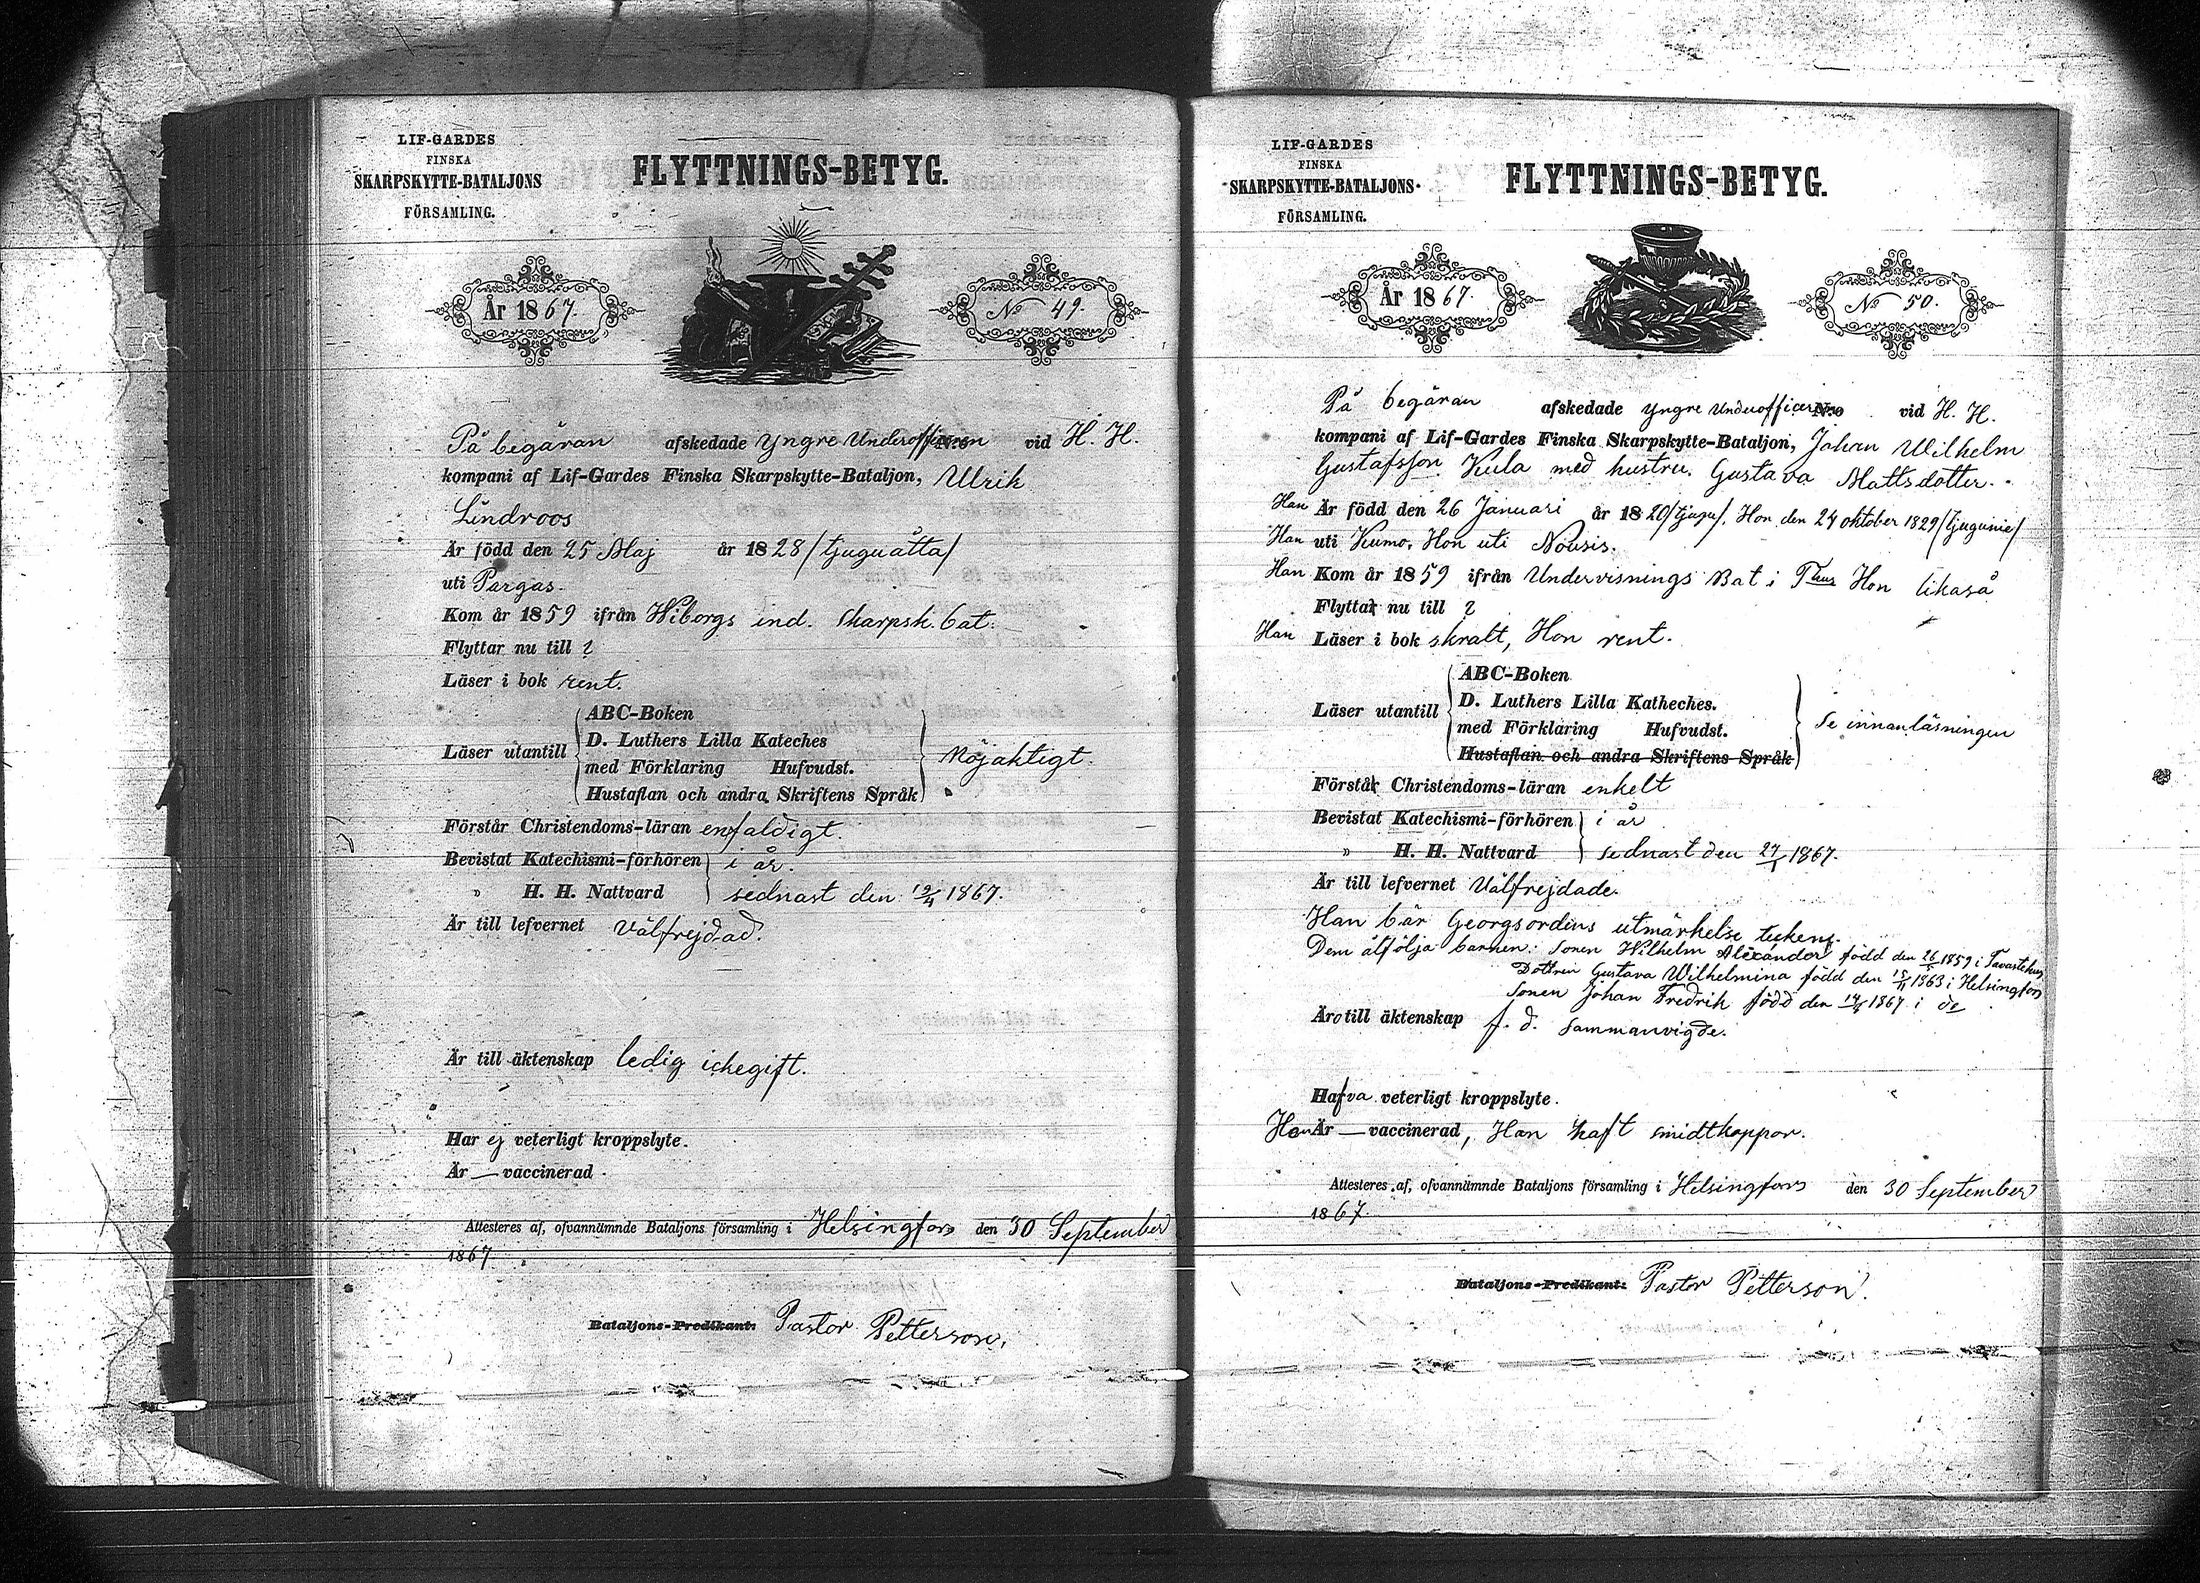 LIF-GARDES
FINSKA
SKARPSKYTTE-BATALJONS
FÖRSAMLING.
FLYTTNINGS-BETYG.
År 1867.
No 49.
På begäran afskedade Yngre Underofficeren N:o vid H. H.
kompani af Lif-Gardes Finska Skarpskytte-Bataljon, Ulrik
Lindroos
Är född den 25 Maj år 1828 /tjuguåtta/
uti Pargas.
Kom år 1859 ifrån Wiborgs ind. Skarpsk. bat.
Flyttar nu till ?
Läser i bok rent.
Läser utantill
ABC-Boken
D. Luthers Lilla Kateches
med Förklaring Hufvudst.
Hustaflan och andra Skriftens Språk
Nöjaktigt.
Förstår Christendoms-läran enfaldigt.
Bevistat Katechismi-förhören i år.
" H. H. Nattvard sednast den 19/4 1867.
Är till lefvernet Välfrejdad.
Är till äktenskap ledig ickegift.
Har ej veterligt kroppslyte.
Är — vaccinerad
Attesteres af, ofvannämnde Bataljons församling i Helsingfors den 30 September
1867
Bataljons-Predikant: Pastor Petterson.
LIF-GARDES
FINSKA
SKARPSKYTTE-BATALJONS
FÖRSAMLING.
FLYTTNINGS-BETYG.
År 1867.
No 50.
På begäran afskedade Yngre Underofficeren N:o vid H. H.
kompani af Lif-Gardes Finska Skarpskytte-Bataljon, Johan Wilhelm
Gustafsson Kula med hustru Gustava Mattsdotter.
Han Är född den 26 Januari år 1820 /tjugu/. Hon den 24 oktober 1829 /tjugunie/
Han uti Kumo. Hon uti Nousis.
Han Kom år 1859 ifrån Undervisnings Bat i Thus Hon likaså
Flyttar nu till ?
Han Läser i bok skralt, Hon rent.
Läser utantill
ABC-Boken
D. Luthers Lilla Katheches.
med Förklaring Hufvudst.
Hustaflan och andra Skriftens Språk
Se innanläsningen
Förstår Christendoms-läran enkelt
Bevistat Katechismi-förhören i år
" H. H. Nattvard sednast den 27/1 1867.
Är till lefvernet Välfrejdade.
Han bär Georgsordens utmärkelse tecken.
Dem åtfölja barnen: Sonen Wilhelm Alexander född den 26/5 1859 i Tavastehus
Dottren Gustava Wilhelmina född den 15/11 1863 i Helsingfors
Sonen Johan Fredrik född den 14/4 1867 i do
Äro till äktenskap f. d. sammanvigde.
Hafva veterligt kroppslyte.
Hon Är — vaccinerad, Han haft smidtkoppor.
Attesteres af, ofvannämnde Bataljons församling i Helsingfors den 30 September
1867.
Bataljons-Predikant: Pastor Petterson.